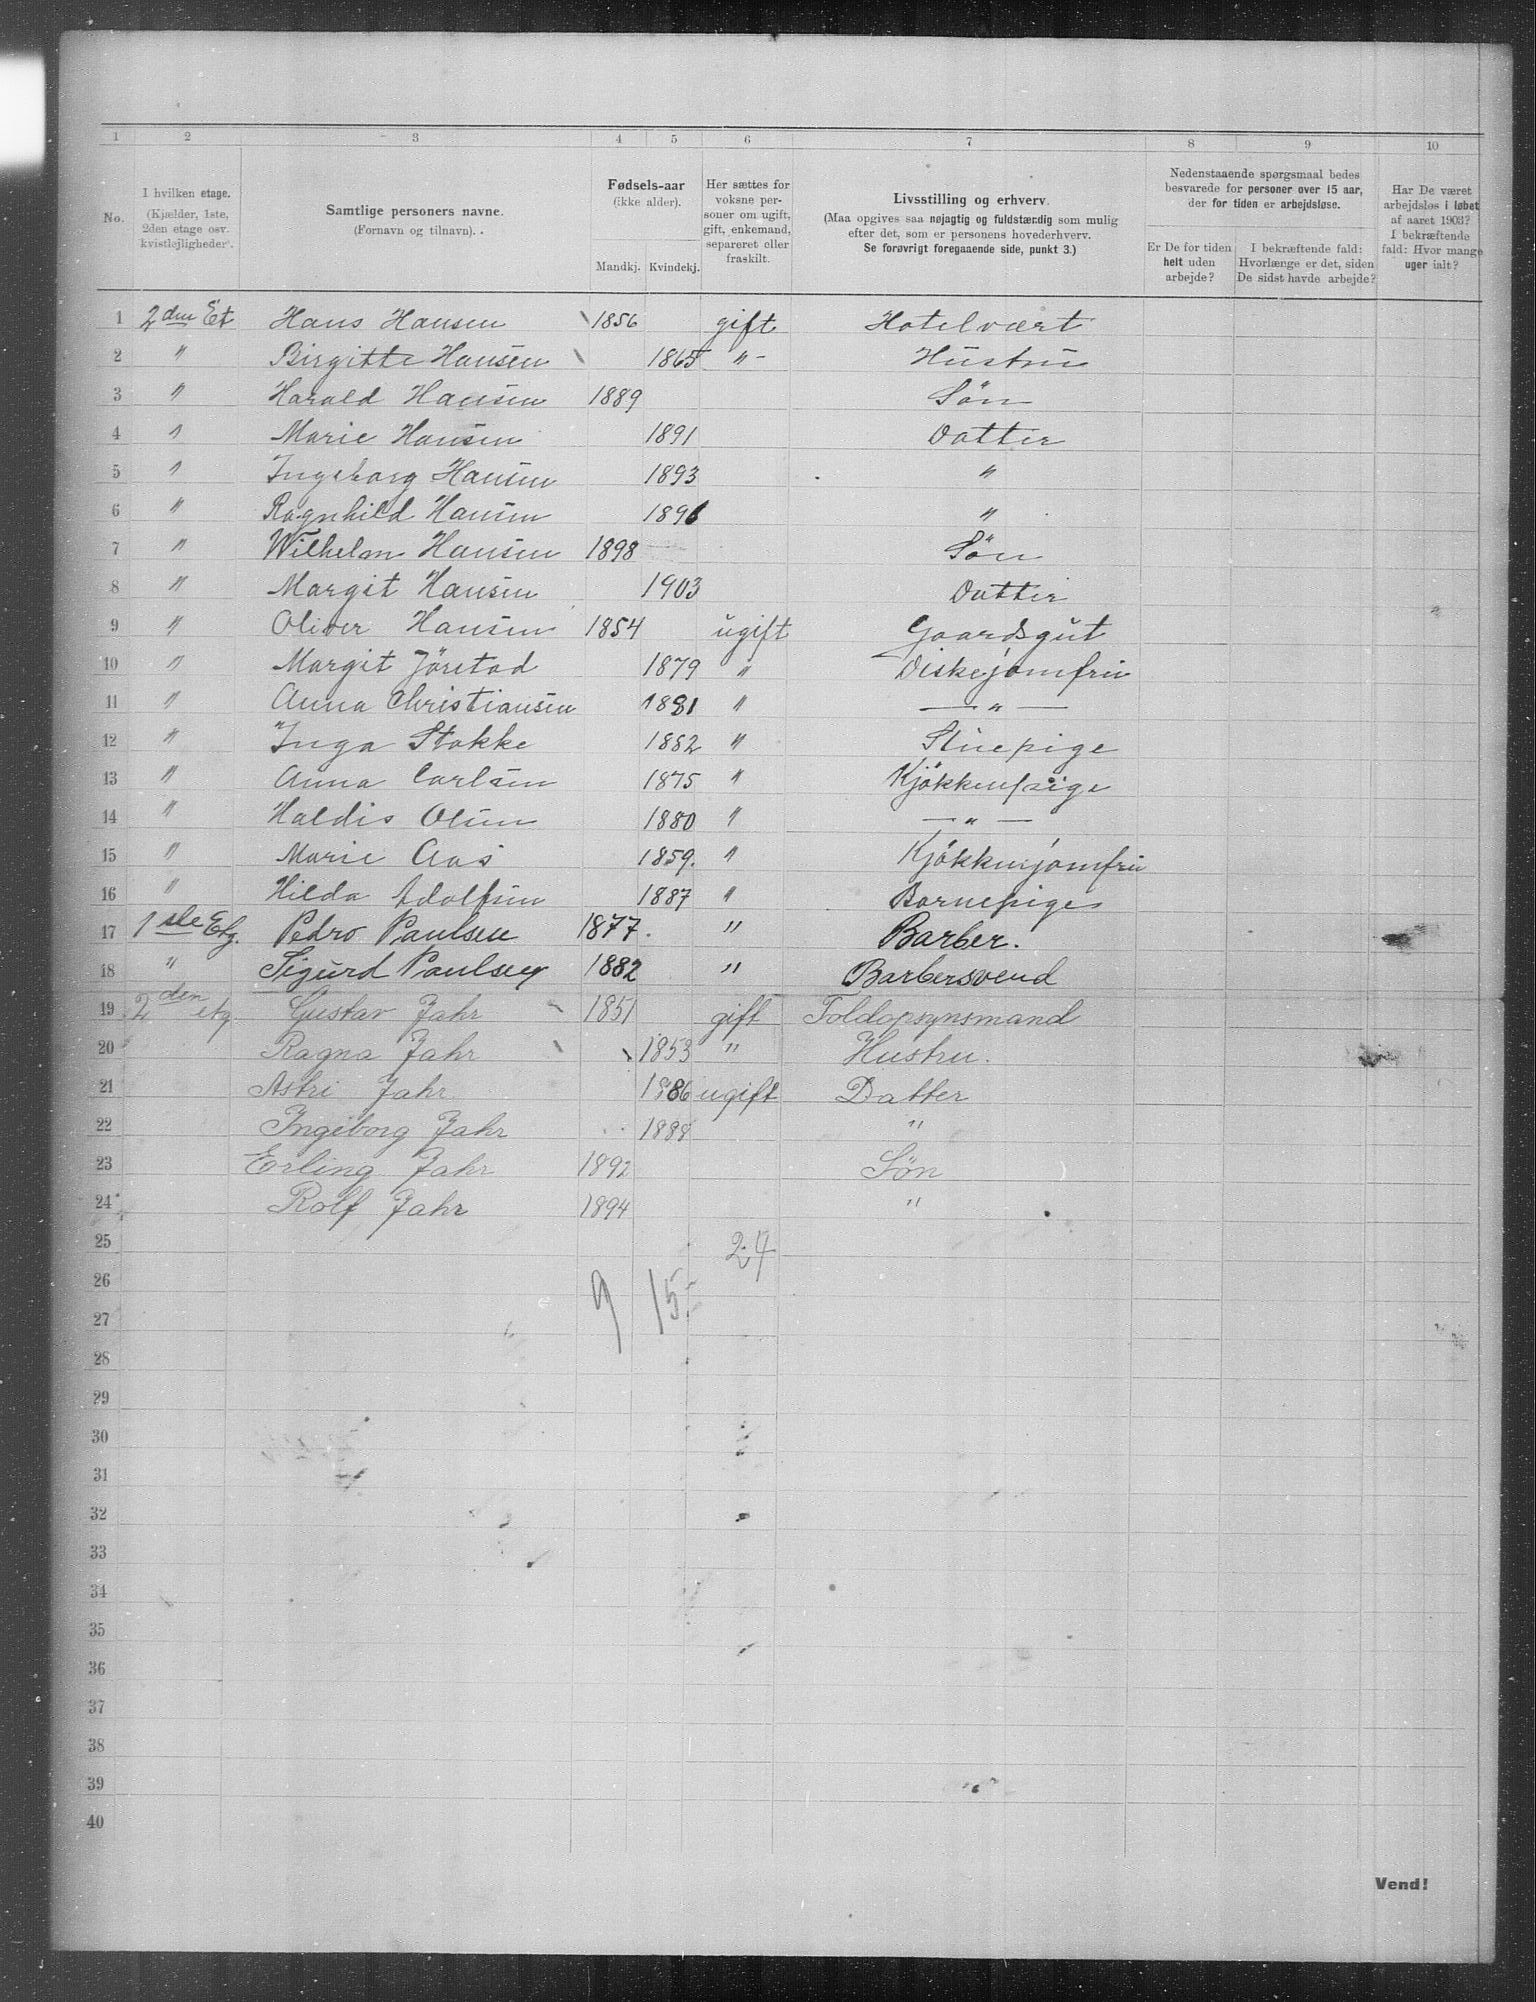 1 2 3 4 5 6 7 8 9 10
No.
I hvilken etage.
(Kjælder, 1ste,
2den etage osv.
kvistlejligheder).
Samtlige personers navne.
(Fornavn og tilnavn).
Fødsels-aar
(ikke alder).
Mandkj. Kvindekj.
Her sættes for
voksne per-
soner om ugift,
gift, enkemand,
separeret eller
fraskilt.
Livsstilling og erhverv.
(Maa opgives saa nøjagtig og fuldstændig som mulig
efter det, som er personens hovederhverv.
Se forøvrigt foregaaende side, punkt 3.)
Nedenstaaende spørgsmaal bedes
besvarede for personer over 15 aar,
der for tiden er arbejdsløse.
Er De for tiden
helt uden
arbejde?
I bekræftende fald:
Hvorlænge er det, siden
De sidst havde arbejde?
Har De været
arbejdsløs i løbet
af aaret 1903?
I bekræftende
fald: Hvor mange
uger ialt?
1 2den Et Hans Hansen 1856 gift Hotelvært
2 " Birgitte Hansen 1865 " - Hustru
3 " Harald Hansen 1889 Søn
4 " Marie Hansen 1891 Datter
5 " Ingeborg Hansen 1893 "
6 " Ragnhild Hansen 1896 "
7 " Wilhelm Hansen 1898 Søn
8 " Margit Hansen 1903 Datter
9 " Oliver Hansen 1854 ugift Gaardsgut
10 " Margit Jörstad 1879 " Diskejomfru
11 " Anna Christiansen 1881 " — " —
12 " Inga Stokke 1882 " Stuepige
13 " Anna Carlsen 1875 " Kjökkenpige
14 " Haldis Olsen 1880 " — " —
15 " Marie Aas 1859. " Kjökkenjomfru
16 " Hilda Adolfsen 1887 " Barnepige
17 1ste Etg. Pedro Paulsen 1877. " Barber.
18 " Sigurd Paulsen 1882 " Barbersvend
19 2den etg Gustav Jahr 1851 gift Toldopsynsmand
20 Ragna Jahr 1853 " Hustru.
21 Astri Jahr 1886 ugift Datter
22 Ingeborg Jahr 1888 "
23 Erling Jahr 1892 Søn
24 Rolf Jahr 1894 "
25 24
26 9 15
27
28
29
30
31
32
33
34
35
36
37
38
39
40
Vend!